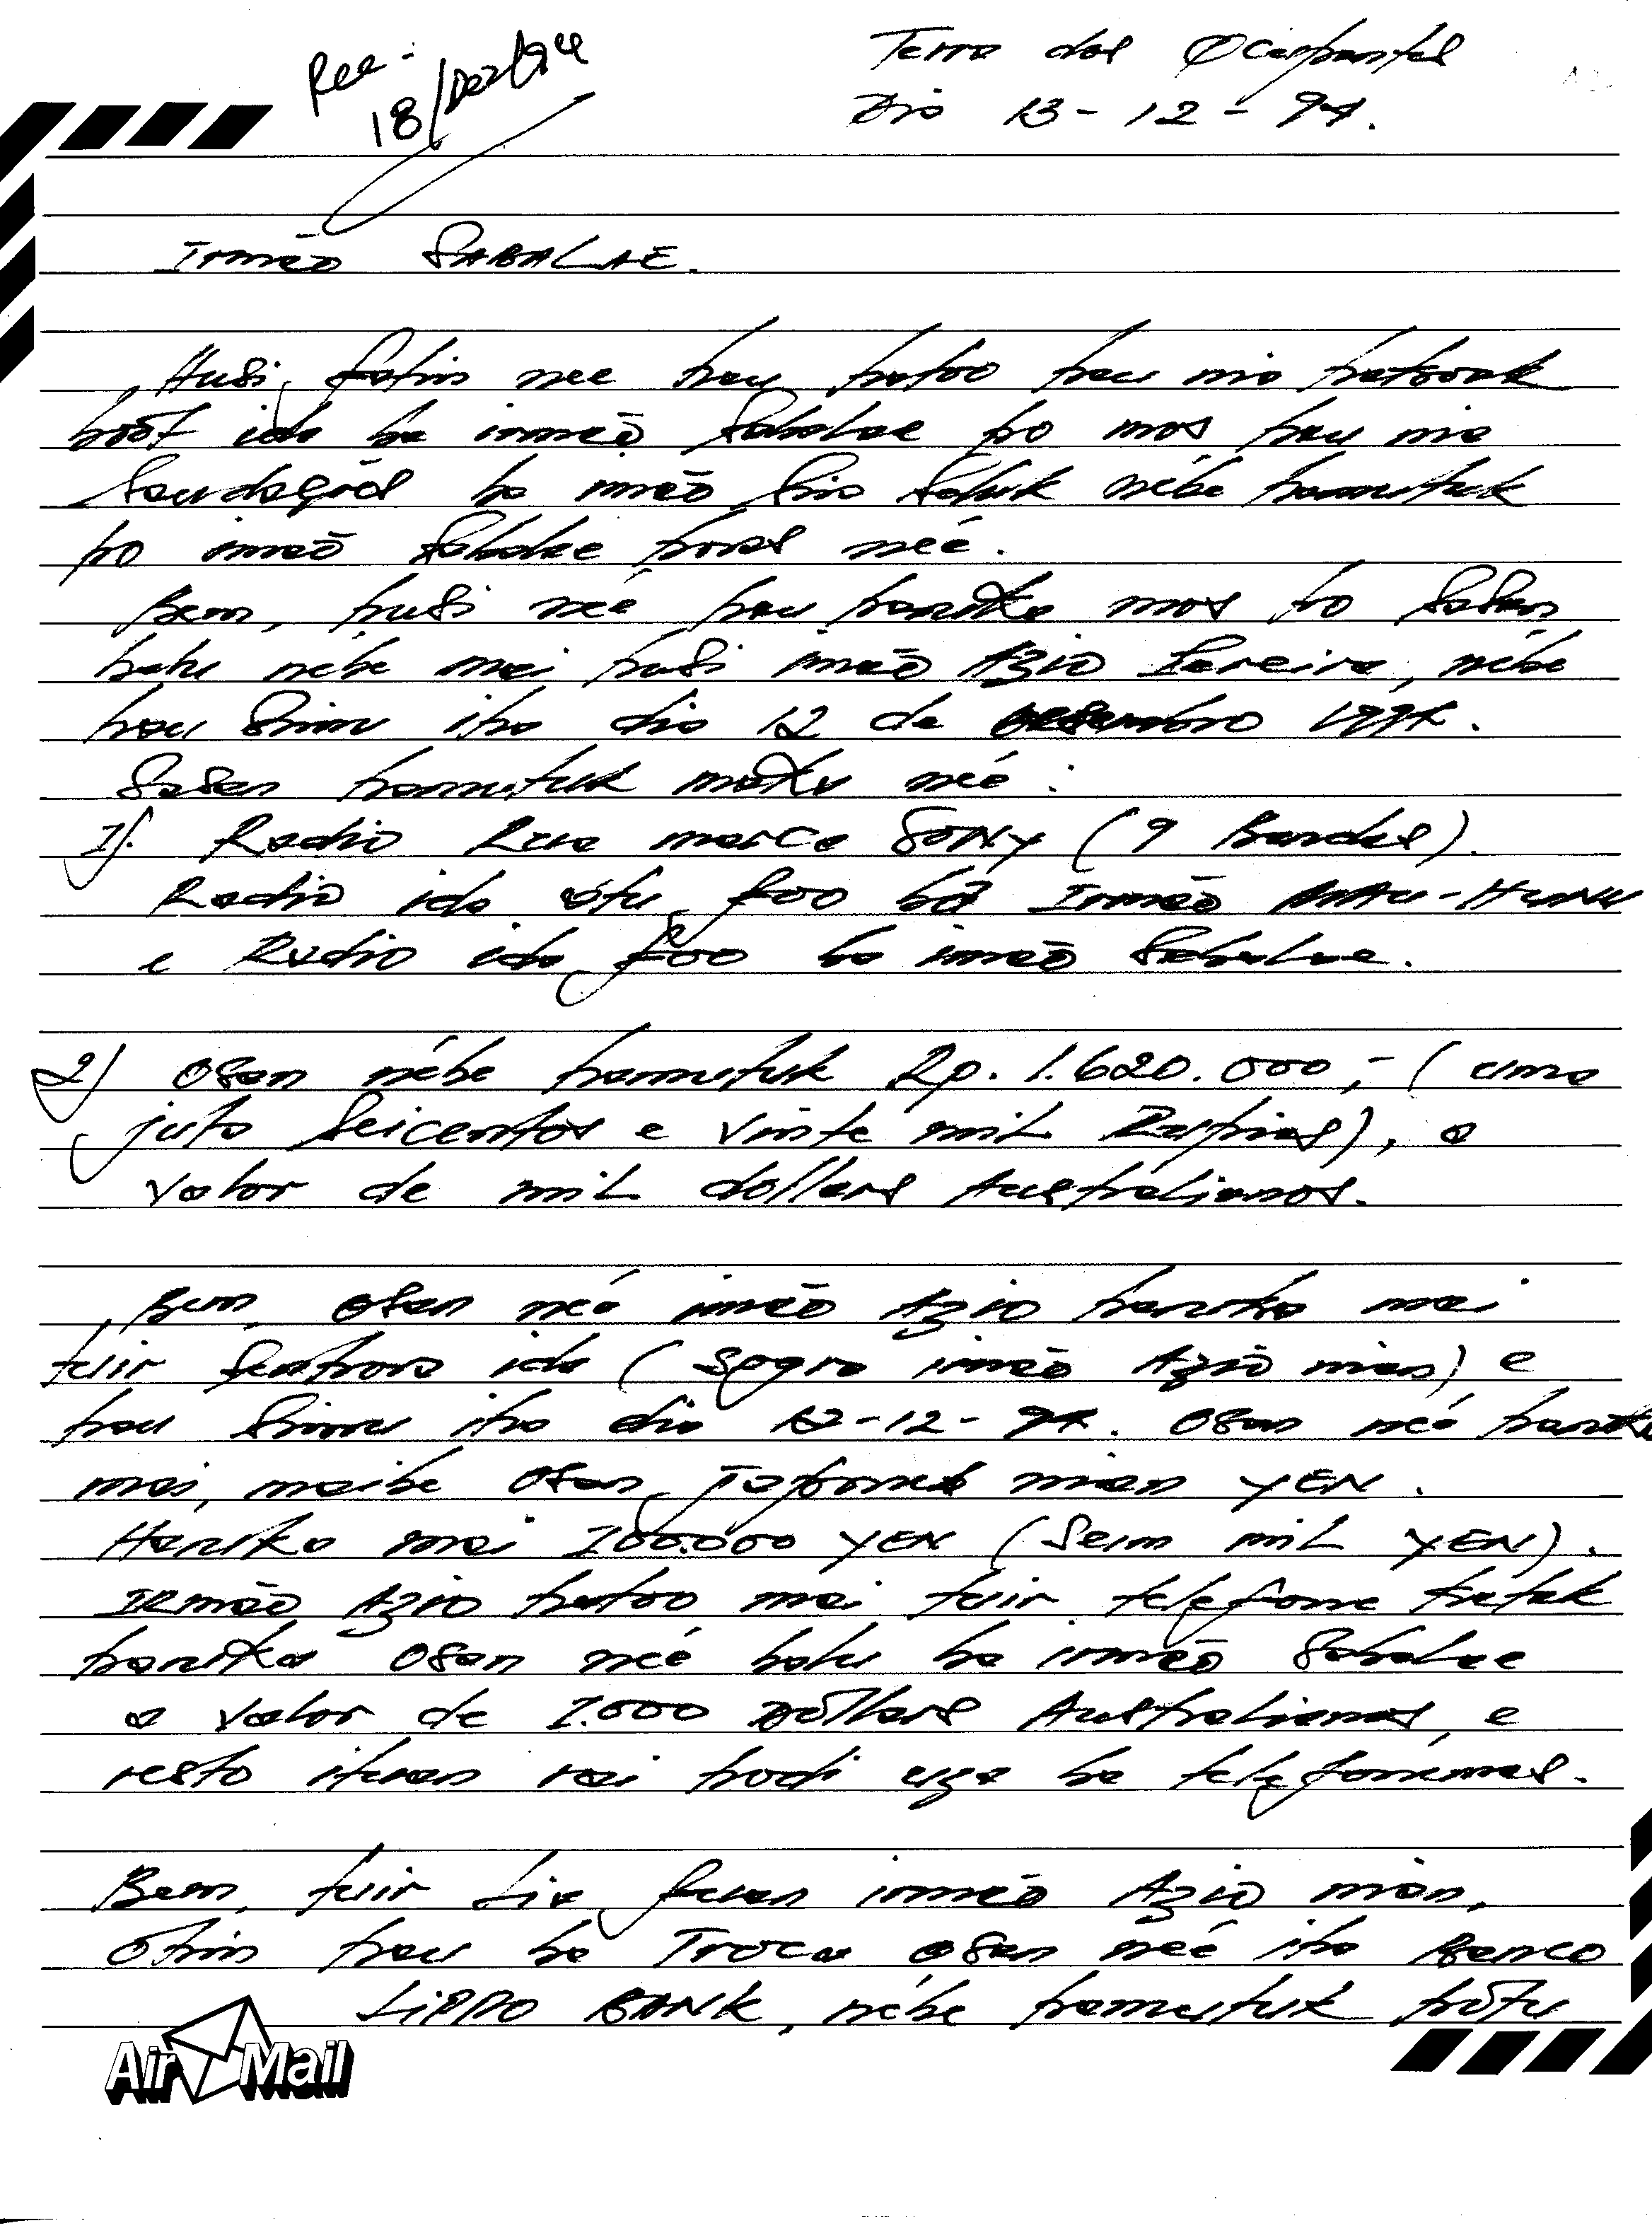 Rec-
18/Dez/94
Terra dos Ocupantes
Dia 13-12-94.
Irmão SABALAE.
Husi fatin neé hau hatoo hau nia hatoook
boót ida ba irmão Sabalae ho mos hau nia
Saudações ba irmão Sira Seluk nébe hamutuk
ho irmão Sabalae horas neé.
Bem, husi neé hau haruka mos ho Sasan
balu nebe mai husi irmão Azio Pereira, nébe
hau Simu iha dia 12 de desembro 1994.
Sasan hamutuk maka neé:
1). Radio Rua marca SONY (9 Bandas).
Radio ida atu foo bá Irmão MAU-HUNU
e Radio ida foo ba irmão Sabalae.
2) Osan nébe hamutuk Rp. 1.620.000,- (uma
juta Seicentos e vinte mil Rupias), o
valor de mil dollars Australianos.
Bem, osan neé irmão Azio haruka mai
tuir Senhora ida (Sogra irmão Azio nian) e
hau Simu iha dia 12-12-94. Osan neé haruka
mai, maibe osan Japones nian YEN.
Haruka mai 100.000 YEN (Sem mil YEN).
IRmão Azio hatoo mai tuir telefone katak
haruka osan neé balu ba irmão Sabalae
o valor de 1.000 Dollars Australianos, e
resto ituan rai hodi uza ba telefonemas.
Bem, tuir Lia fuan irmão Azio nian,
óhin hau ba Troca osan neé iha Banco
LIPPO BANK, nébe hamutuk hótu
Air Mail